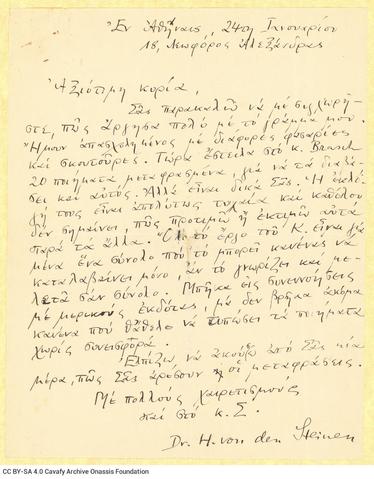 Ἐν Ἀθήναις, 24ῃ Ἰανουαρίου
18, Λεωφόρος Ἀλεξάνδρας
Ἀξιότιμη κυρία,
Σᾶς παρακαλῶ νὰ μὲ συγχωρή-
στε, πῶς ἄργησα πολὺ μὲ τὸ γράμμα μου.
Ἤμουν ἀπασχολημένος μὲ διάφορες φασαρίες
καὶ σκοτοῦρες. Τώρα ἔστειλα στὸ κ.
20 ποιήματα μεταφρασμένα, γιὰ νὰ τὰ διαβά-
σει καὶ αὐτός. Ἀλλὰ εἶναι δικά Σᾶς. Ἡ ἐκλο-
γή τους εἶναι ἀπολύτως τυχαία καὶ καθόλου
δὲν σημαίνει, πῶς προτιμῶ ἢ ἐκτιμῶ αὐτὰ
παρὰ τὰ ἄλλα. Ὅλο τὸ ἔργο τοῦ Κ. εἶναι γιὰ
μένα ἕνα σύνολο ποὺ τὸ μπορεῖ κανένας νὰ
καταλαβαίνει μόνο, ἂν τὸ γνωρίζει καὶ με-
λετᾶ σὰν σύνολο. Μπῆκα εἰς συνεννοήσεις
μὲ μερικοὺς ἐκδότας, μὰ δὲν βρῆκα ἀκόμα
κανένα ποὺ θἄθελε νὰ τυπώσει τὰ ποιήματα
χωρὶς συνεισφορά.
Ἐλπίζω νὰ ἀκούξω ἀπὸ Σᾶς μία
μέρα, πῶς Σᾶς ἀρέσουν οἱ μεταφράσεις.
Μὲ πολλοὺς χαιρετισμοὺς
καὶ στὸ κ. Σ.
Dr. H. von den Steinen
CC BY-SA 4.0 Cavafy Archive Onassis Foundation